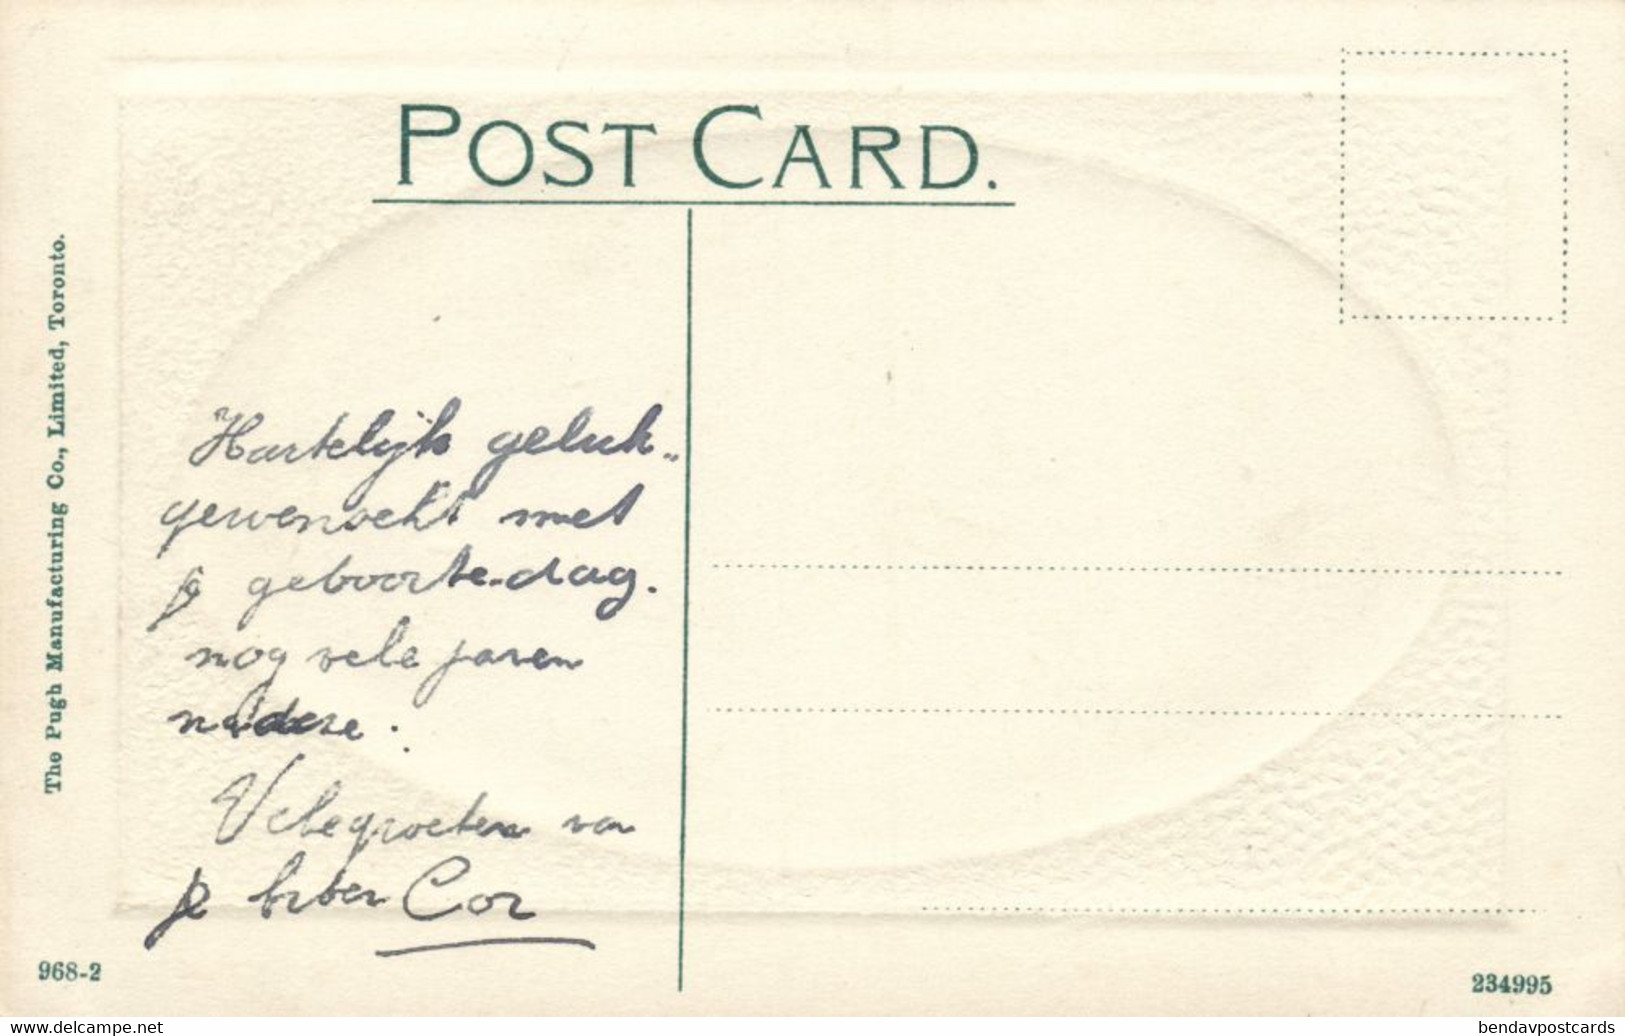 POST CARD.
The Pugh Manufacturing Co., Limited, Toronto.
Hartelijk geluk-
gewenscht met
je geboorte-dag.
nog vele jaren
na deze.
Vele groeten van
je broer Cor
968-2
234995
www.delcampe.net
bendavpostcards